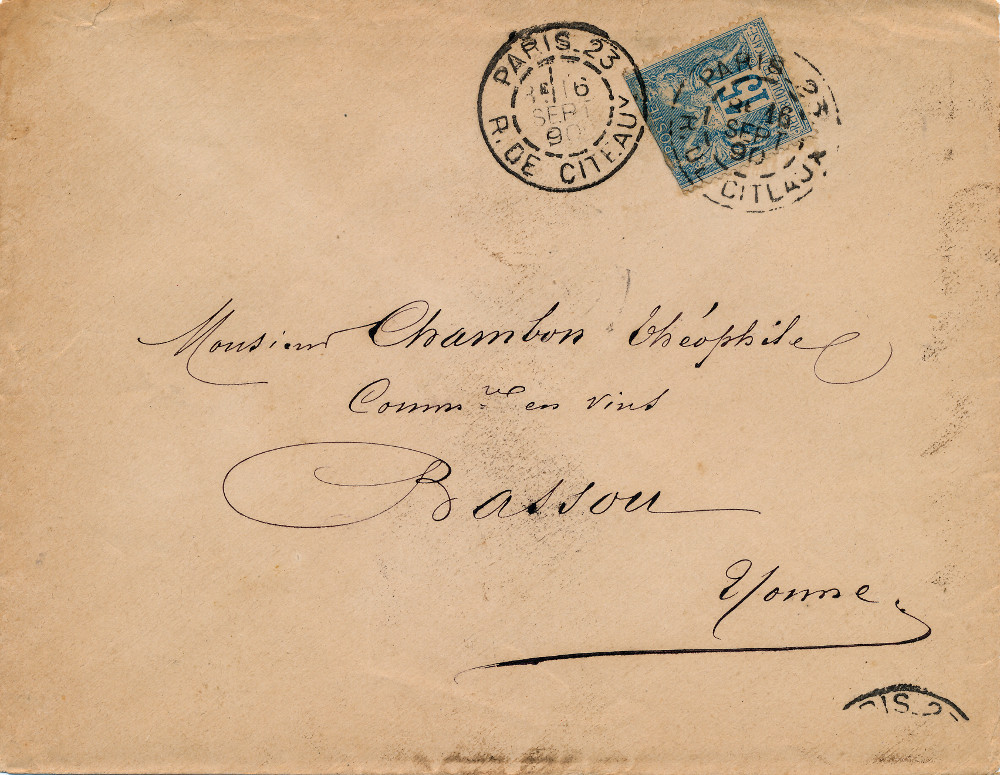 PARIS_23
16
SEPT
90
R. DE CITEAUX
15
PARIS_23
16
SEPT
90
CITEAUX
Monsieur Chambon Théophile
Comm.re en vins
Bassou
Yonne
RIS_2